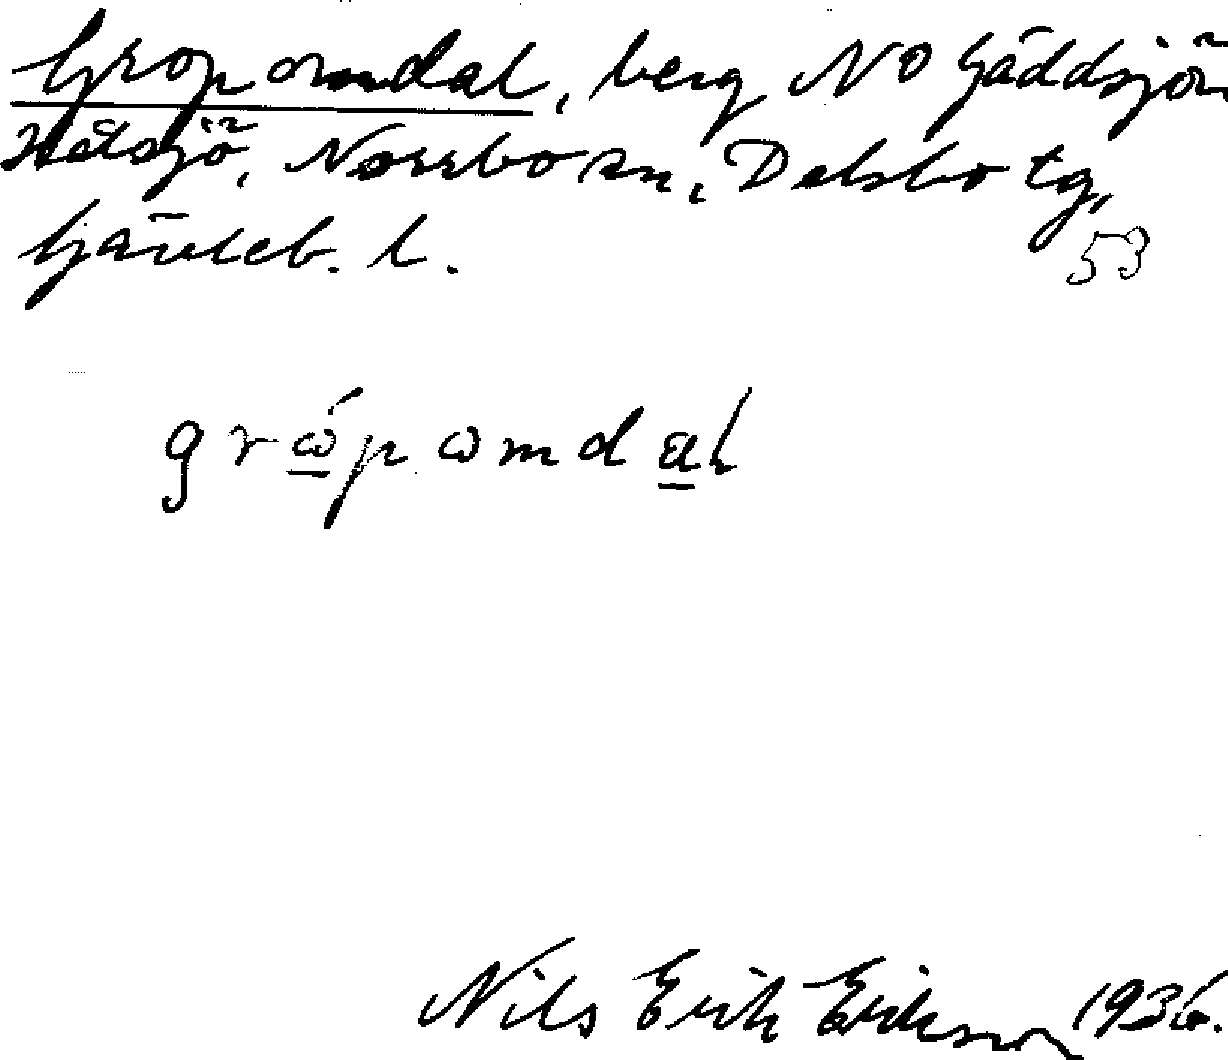 Gropomdal, berg NO Gäddsjön
Håsjö, Norrbo sn, Delsbo tg,
Gävleb. l.
53
grώ̲pωmda̲l
Nils Erik Erikson 1936.